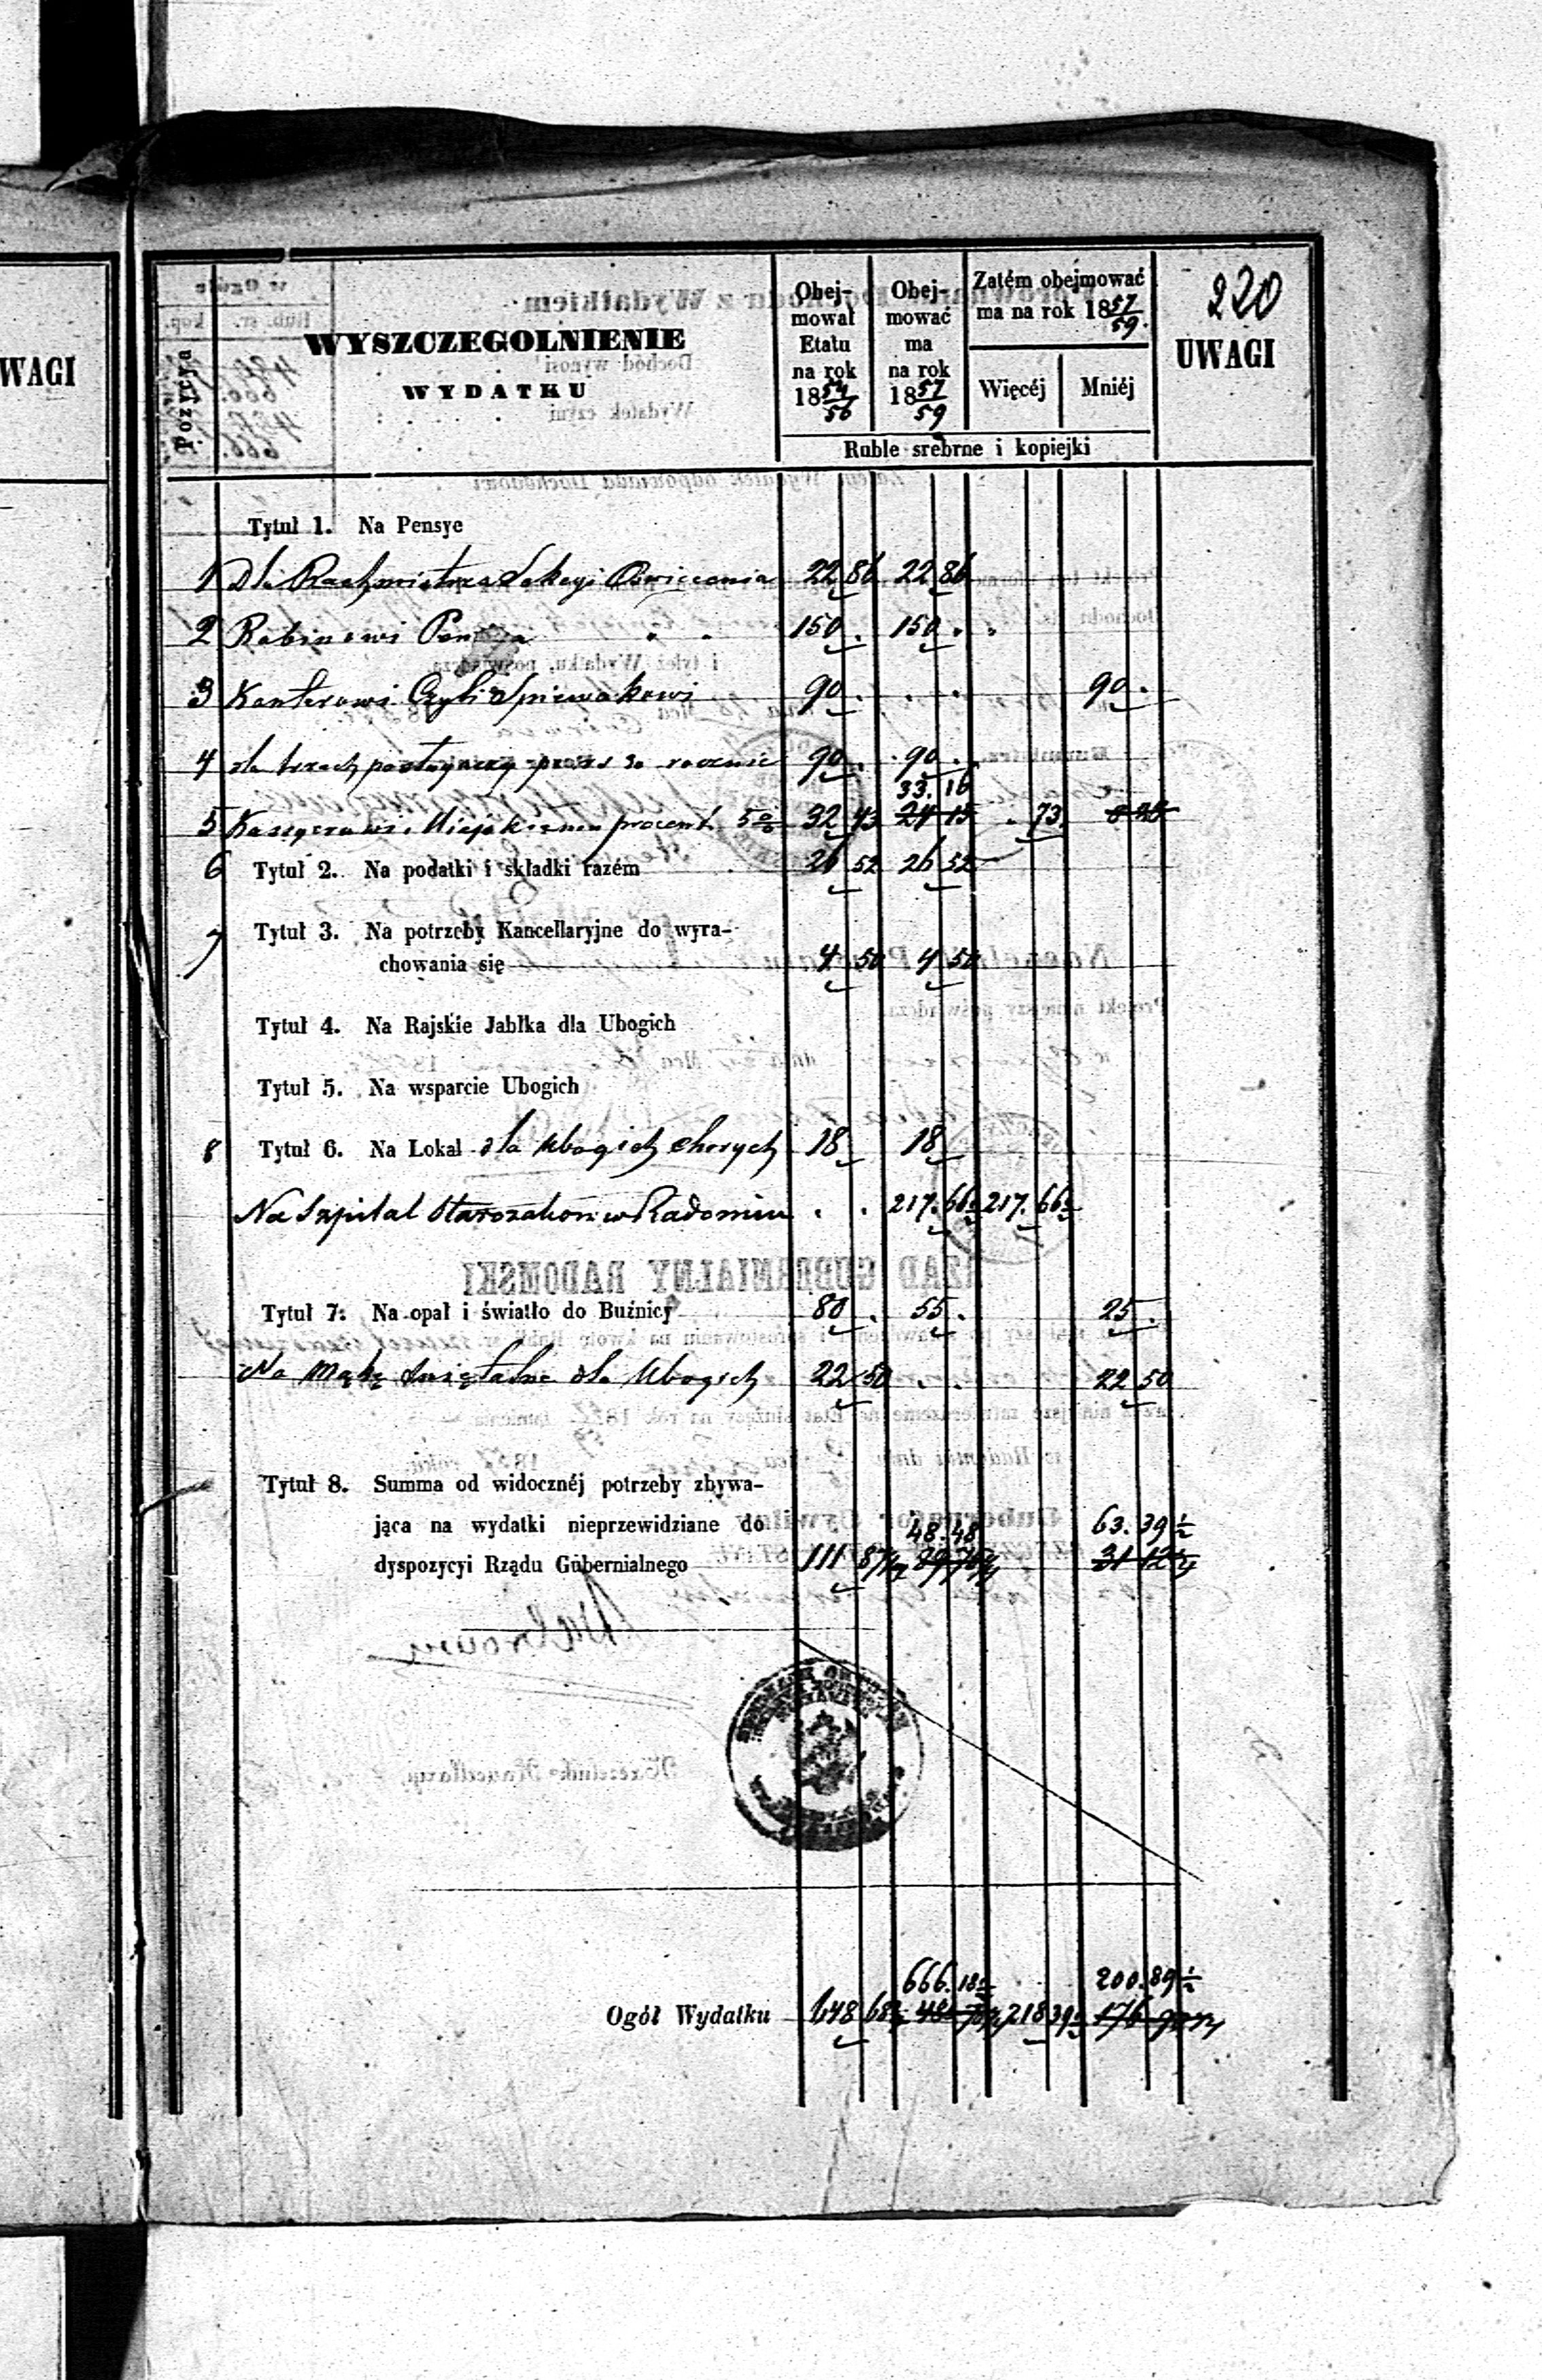 WAGI
220
Pozycja
WYSZCZEGOLNIENIE
WYDATKU
Obej-
mował
Etatu
na rok
1854/56
Obej-
mować
ma
na rok
1857/59
Zatém obejmować
ma na rok 1857/59.
Więcéj
Mniéj
UWAGI
Ruble srebrne i kopiejki
Tytuł 1. Na Pensye
1 Dla Rachmistrza Sekcyi Oświecenia 22 86 22 86
2 Rabinowi Pensya " " 150 . 150 . .
3 Kantorowi Czyli Spiewakowi 90 . . . 90 .
4 dla trzech rocznie 90 . 90 . .
33. 16
5 Kassyerowi Miejskiemu procent 5 % 32 43 24 15 . 73
6 Tytuł 2. Na podatki i składki razém 26 52 26 52
7 Tytuł 3. Na potrzeby Kancellaryjne do wyra-
chowania się 4 50 4 50
Tytuł 4. Na Rajskie Jabłka dla Ubogich
Tytuł 5. Na wsparcie Ubogich
8 Tytuł 6. Na Lokal dla Ubogich chorych 18 18
Na Szpital Starozakon w Radomiu . . 217. 66½ 217. 66½
RZĄD GUBERNIALNY RADOMSKI
Tytuł 7: Na opał i światło do Buźnicy 80 . 55 . 25 .
Na Mąkę świętalną dla Ubogich 22 50 . . 22 50
Tytuł 8. Summa od widocznéj potrzeby zbywa-
jąca na wydatki nieprzewidziane do 48. 48 63. 39½
dyspozycyi Rządu Gubernialnego 111 87½ 31 12½
666. 18½ 200. 89½
Ogół Wydatku 648 68½ 218 39½ 176